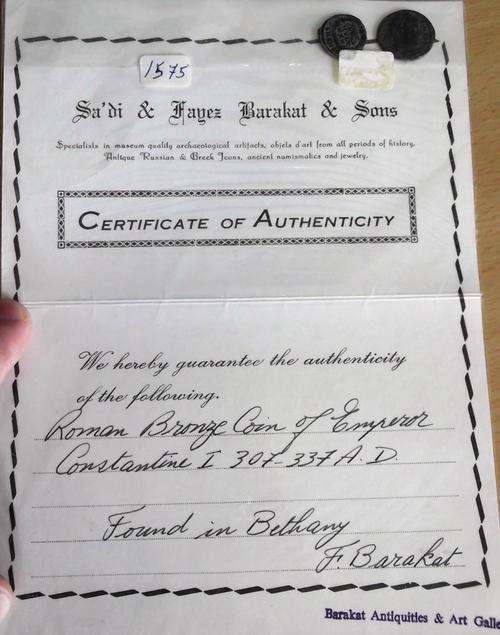 1575
Sa'di & Fayez Barakat & Sons
Specialists in museum quality archaeological artifacts, objets d'art from all periods of history,
Antique Russian & Greek Icons, ancient numismatics and jewelry.
CERTIFICATE OF AUTHENTICITY
We hereby guarantee the authenticity
of the following.
Roman Bronze Coin of Emperor
Constantine I 307-337 A.D.
Found in Bethany
F. Barakat
Barakat Antiquities & Art Galle